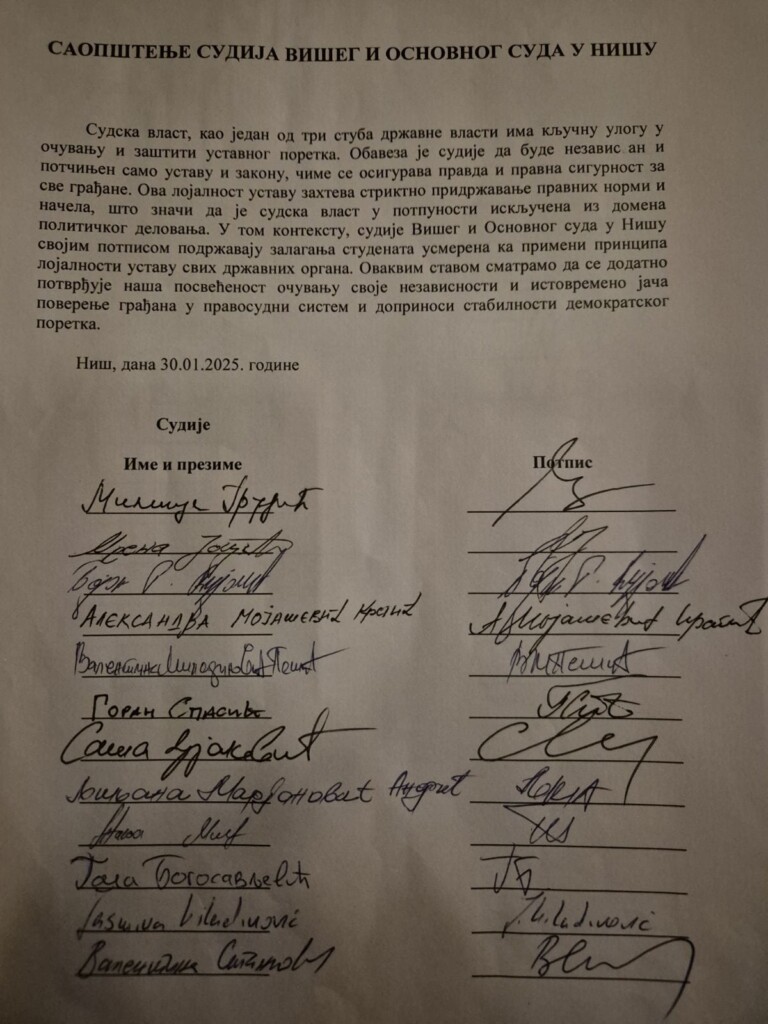 САОПШТЕЊЕ СУДИЈА ВИШЕГ И ОСНОВНОГ СУДА У НИШУ
Судска власт, као један од три стуба државне власти има кључну улогу у
очувању и заштити уставног поретка. Обавеза је судије да буде независ ан и
потчињен само уставу и закону, чиме се осигурава правда и правна сигурност за
све грађане. Ова лојалност уставу захтева стриктно придржавање правних норми и
начела, што значи да је судска власт у потпуности искључена из домена
политичког деловања. У том контексту, судије Вишег и Основног суда у Нишу
својим потписом подржавају залагања студената усмерена ка примени принципа
лојалности уставу свих државних органа. Оваквим ставом сматрамо да се додатно
потврђује наша посвећеност очувању своје независности и истовремено јача
поверење грађана у правосудни систем и доприноси стабилности демократског
поретка.
Ниш, дана 30.01.2025. године
Судије
Име и презиме Потпис
АЛЕКСАНДРА МОЈАШЕВИЋ
Валентина
Горан Спасић
Саша
Љиљана Марјановић Андрић
Богосављевић
Jasmina Miladinović J. Miladinović
Валентина